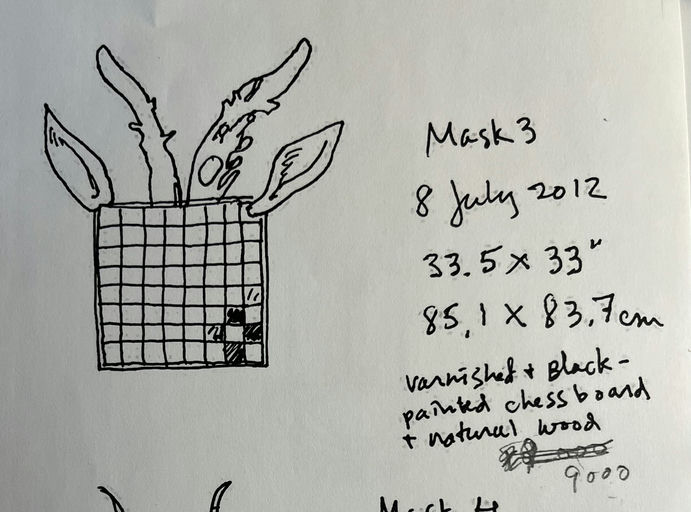 Mask 3
8 July 2012
33.5 × 33"
85.1 × 83.7cm
varnished + Black-
painted chessboard
+ natural wood
9000
Mask 4